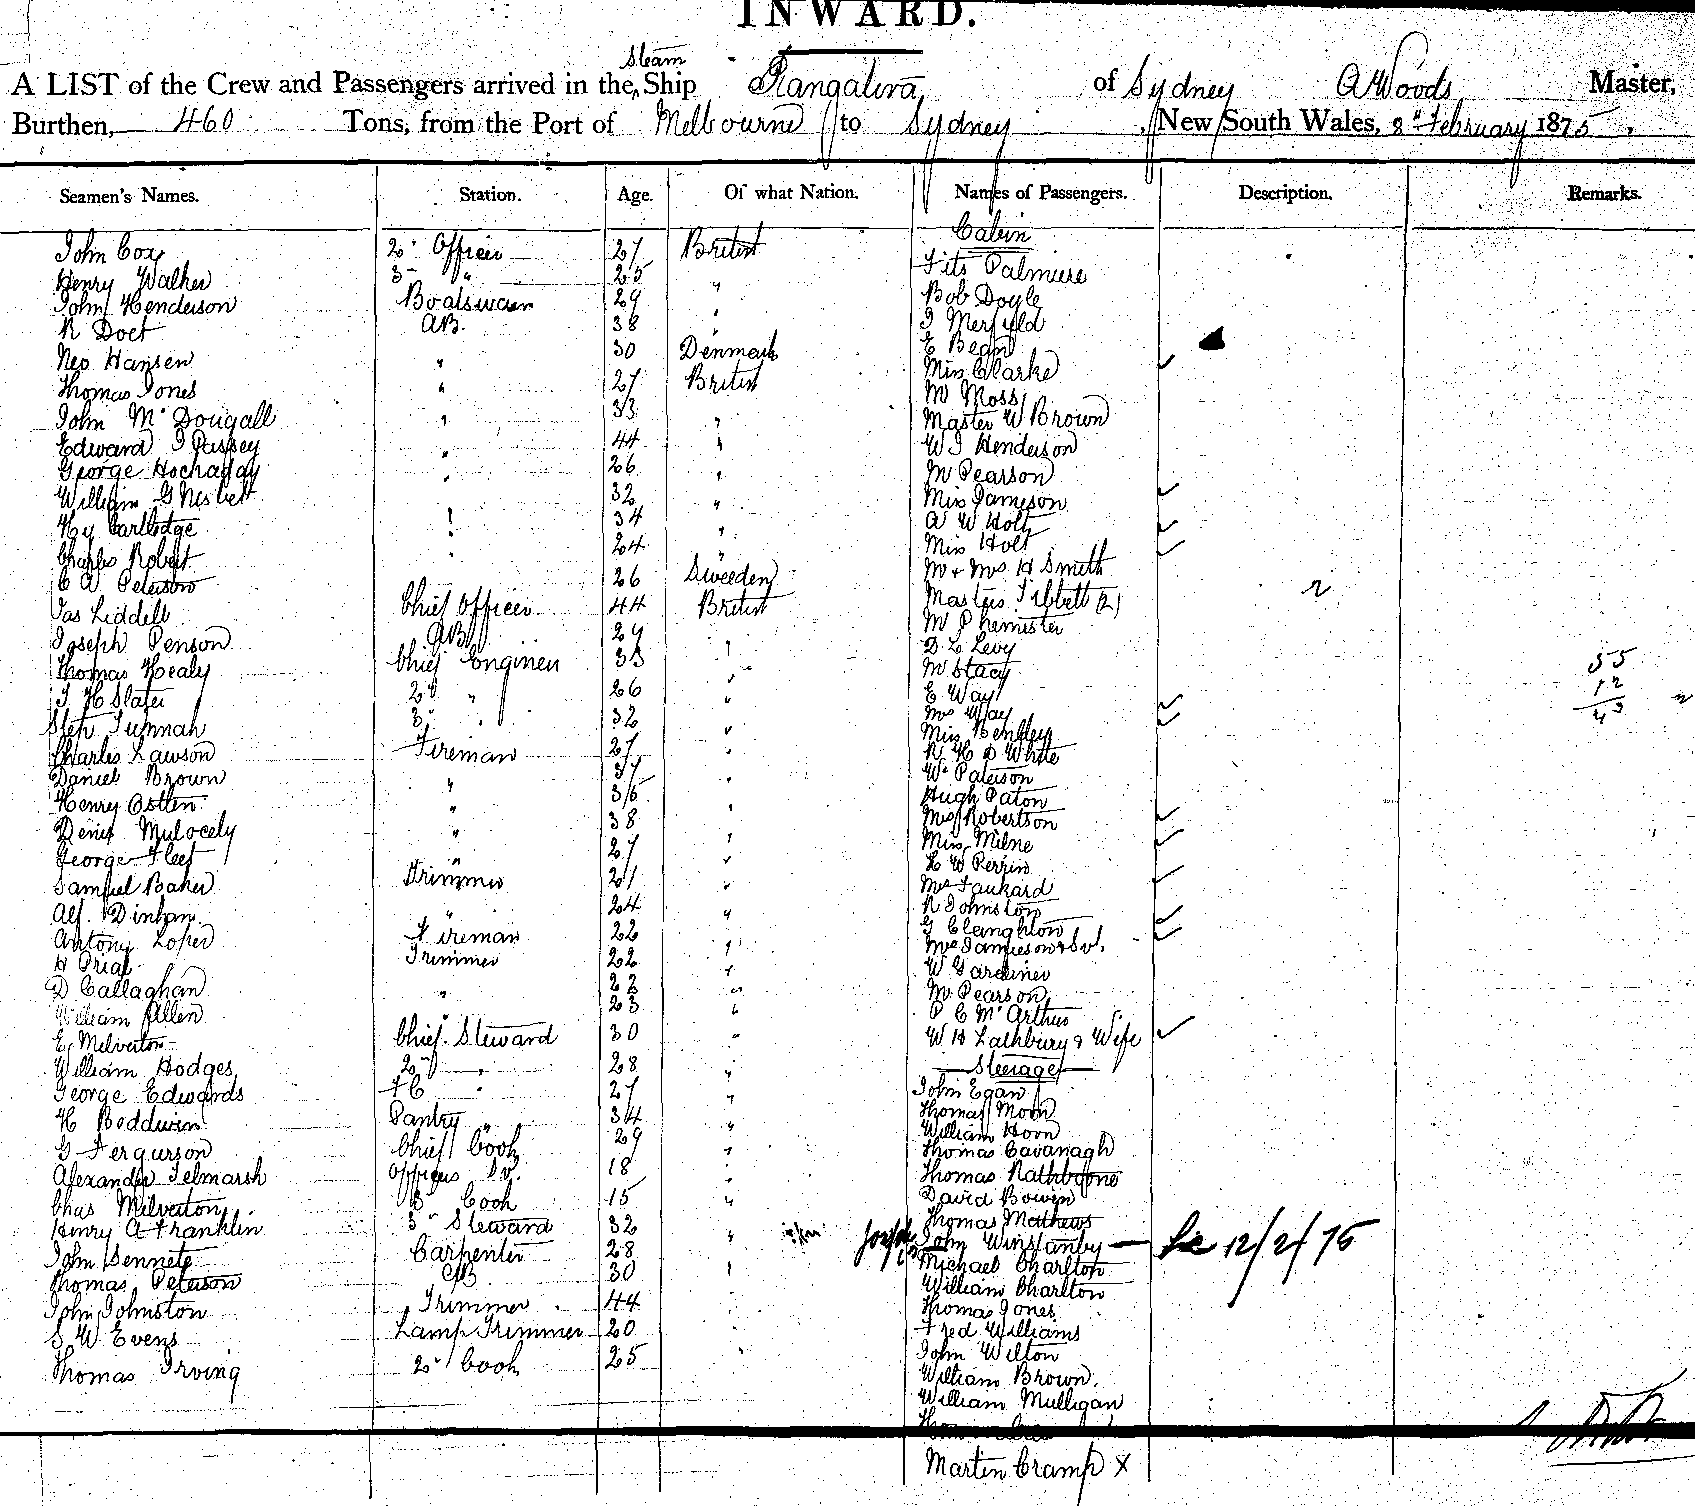 INWARD.
Steam
A LIST of the Crew and Passengers arrived in the Ship Rangatira of Sydney A Woods Master,
Burthen, 460 Tons, from the Port of Melbourne to Sydney, New South Wales, 8th February 1875.
Seamen's Names. Station. Age. Of what Nation. Names of Passengers. Description. Remarks.
Cabin
John Cox 2d Officer 27 British
Henry Walker 3d " 25 "
John Henderson Boatswain 29 "
R Doet A.B. 38 "
Neo Hansen " 30 Denmark
Thomas Jones " 27 British
John McDougall " 33 "
Edward J Passey " 44 "
George Hochaday " 26 "
William G Nisbett 32 "
Hy Cartledge " 34 "
Charles Robert " 24 "
C A Peterson 26 Sweeden
Jas Liddell Chief Officer 44 British
Joseph Penson AB 29 "
Thomas Healy Chief Engineer 33 "
J H Slater 2d " 26 "
Step 3d " 32 "
Charles Lawson Fireman 27 "
Daniel Brown " 37 "
Henry Ostten " 36 "
Denis Mulocely " 38 "
George Fleet " 27 "
Samuel Baker Trimmer 21 "
Alf. Dinham " 24 "
Antony Loper Fireman 22 "
H Prial Trimmer 22 "
D Callaghan " 22 "
William Allen " 23 "
E Milverton Chief Steward 30 "
William Hodges 2d " 28 "
George Edwards FC " 27 "
H Boddwin Pantry " 34 "
G Fergurson Chief Cook 29 "
Alexander Telmarsh Officers Sv. 18 "
Chas Milverton 3d Cook 15 "
Henry A Franklin 3d Steward 32 "
John Sennete Carpenter 28
Thomas Peterson AB 30 "
John Johnston Trimmer 44
S W Evens Lamp Trimmer 20
Thomas Irving 2d Cook 25
Fits Palmiere
Bob Doyle
J Merfyld
E Bean
Miss Clarke
Mr Moss
Master W Brown
W J Henderson
Mr Pearson
Miss Jameson
A W Holt
Miss Holt
Mr & Mrs H Smith
Masters Tibbett (2)
Mr Phemister
D. L. Levy
Mr Stacy
E Way
Mrs Way
Miss Bentley
R H D White
Wm Paterson
Hugh Paton
Mrs Robertson
Miss Milne
H W Perrin
Mrs Tankard
R Johnston
G Claughton
Mrs Jamieson & Svt.
W Gardiner
Mr Pearson
P C McArthur
W H Lathbury & Wife
Steerage
John Egan
Thomas Moon
William Hoon
Thomas Cavanagh
Thomas Rathbone
David Bowen
Thomas Mathews
Joseph John Winstanby 12/2/75
Michael Charlton
William Charlton
Thomas Jones
Fred Williams
John Wilton
William Brown.
William Mulligan
Martin Cramp X
55
12
43